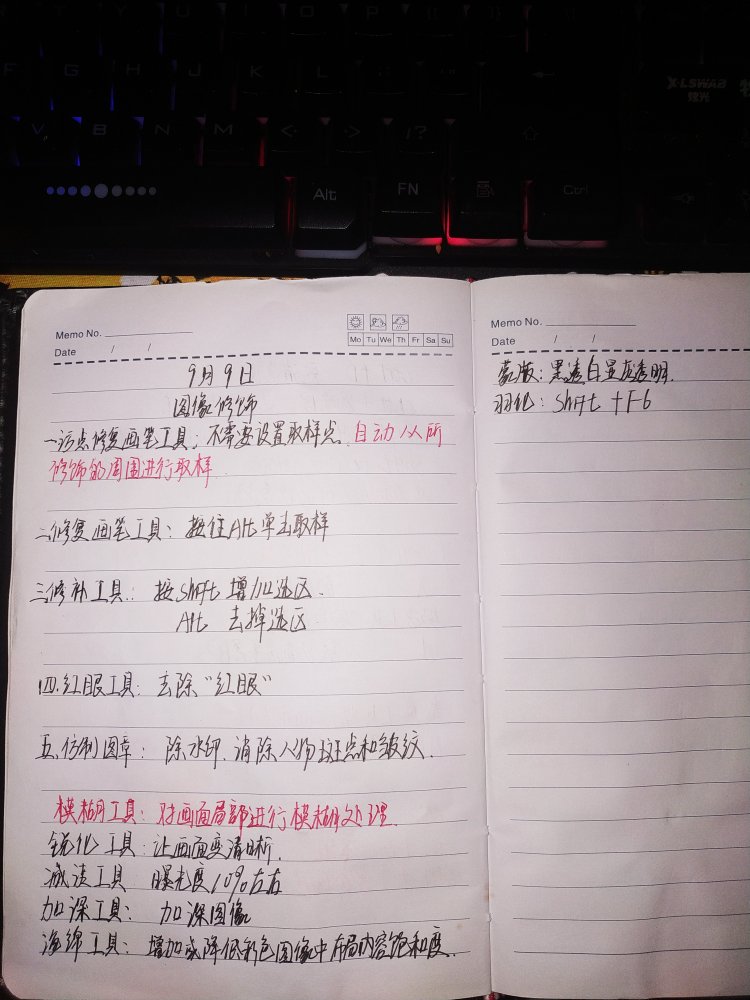 U I O P
F G H J K L
X·LSWAB
炫光
V B N M < > ?
Alt FN Ctrl
Memo No.
Date / /
Mo Tu We Th Fr Sa Su
9月9日
图像修饰
一污点修复画笔工具：不需要设置取样点 自动从所
修饰的周围进行取样
二修复画笔工具：按住Alt单击取样
三修补工具：按Shift 增加选区.
Alt 去掉选区
四.红眼工具：去除“红眼”
五.仿制图章：除水印.消除人物斑点和皱纹.
模糊工具：对画面局部进行模糊处理.
锐化工具：让画面变清晰.
减淡工具 曝光度10%左右
加深工具： 加深图像
海绵工具：增加或降低彩色图像中布局内容饱和度.
Memo No.
Date / /
蒙版：黑透白显灰透明.
羽化：Shift+F6